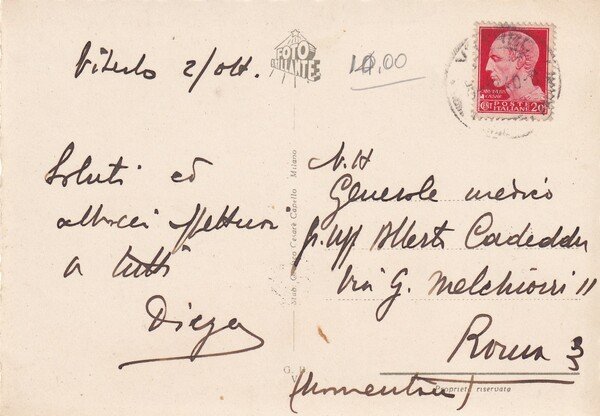 Viterbo 2/ott.
FOTO
BRILLANTE
10,00
GIULIO CESARE
CENT POSTE 20
ITALIANE
Saluti ed
abbracci affettuosi
a tutti
Diego
Stab. Cesare Capello Milano
N.H
Generale medico
Gr. Uff Alberto Cadeddu
Via G. Melchiorri 11
Roma
(Nomentano)
Proprietà riservata